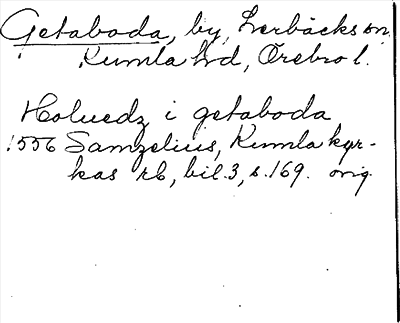 Getaboda, by, Lerbäcks sn,
Kumla hd, Örebro l.
Holuedz i getaboda
1556 Samzelius, Kumla kyr-
kas rb, bil. 3, s. 169. orig.